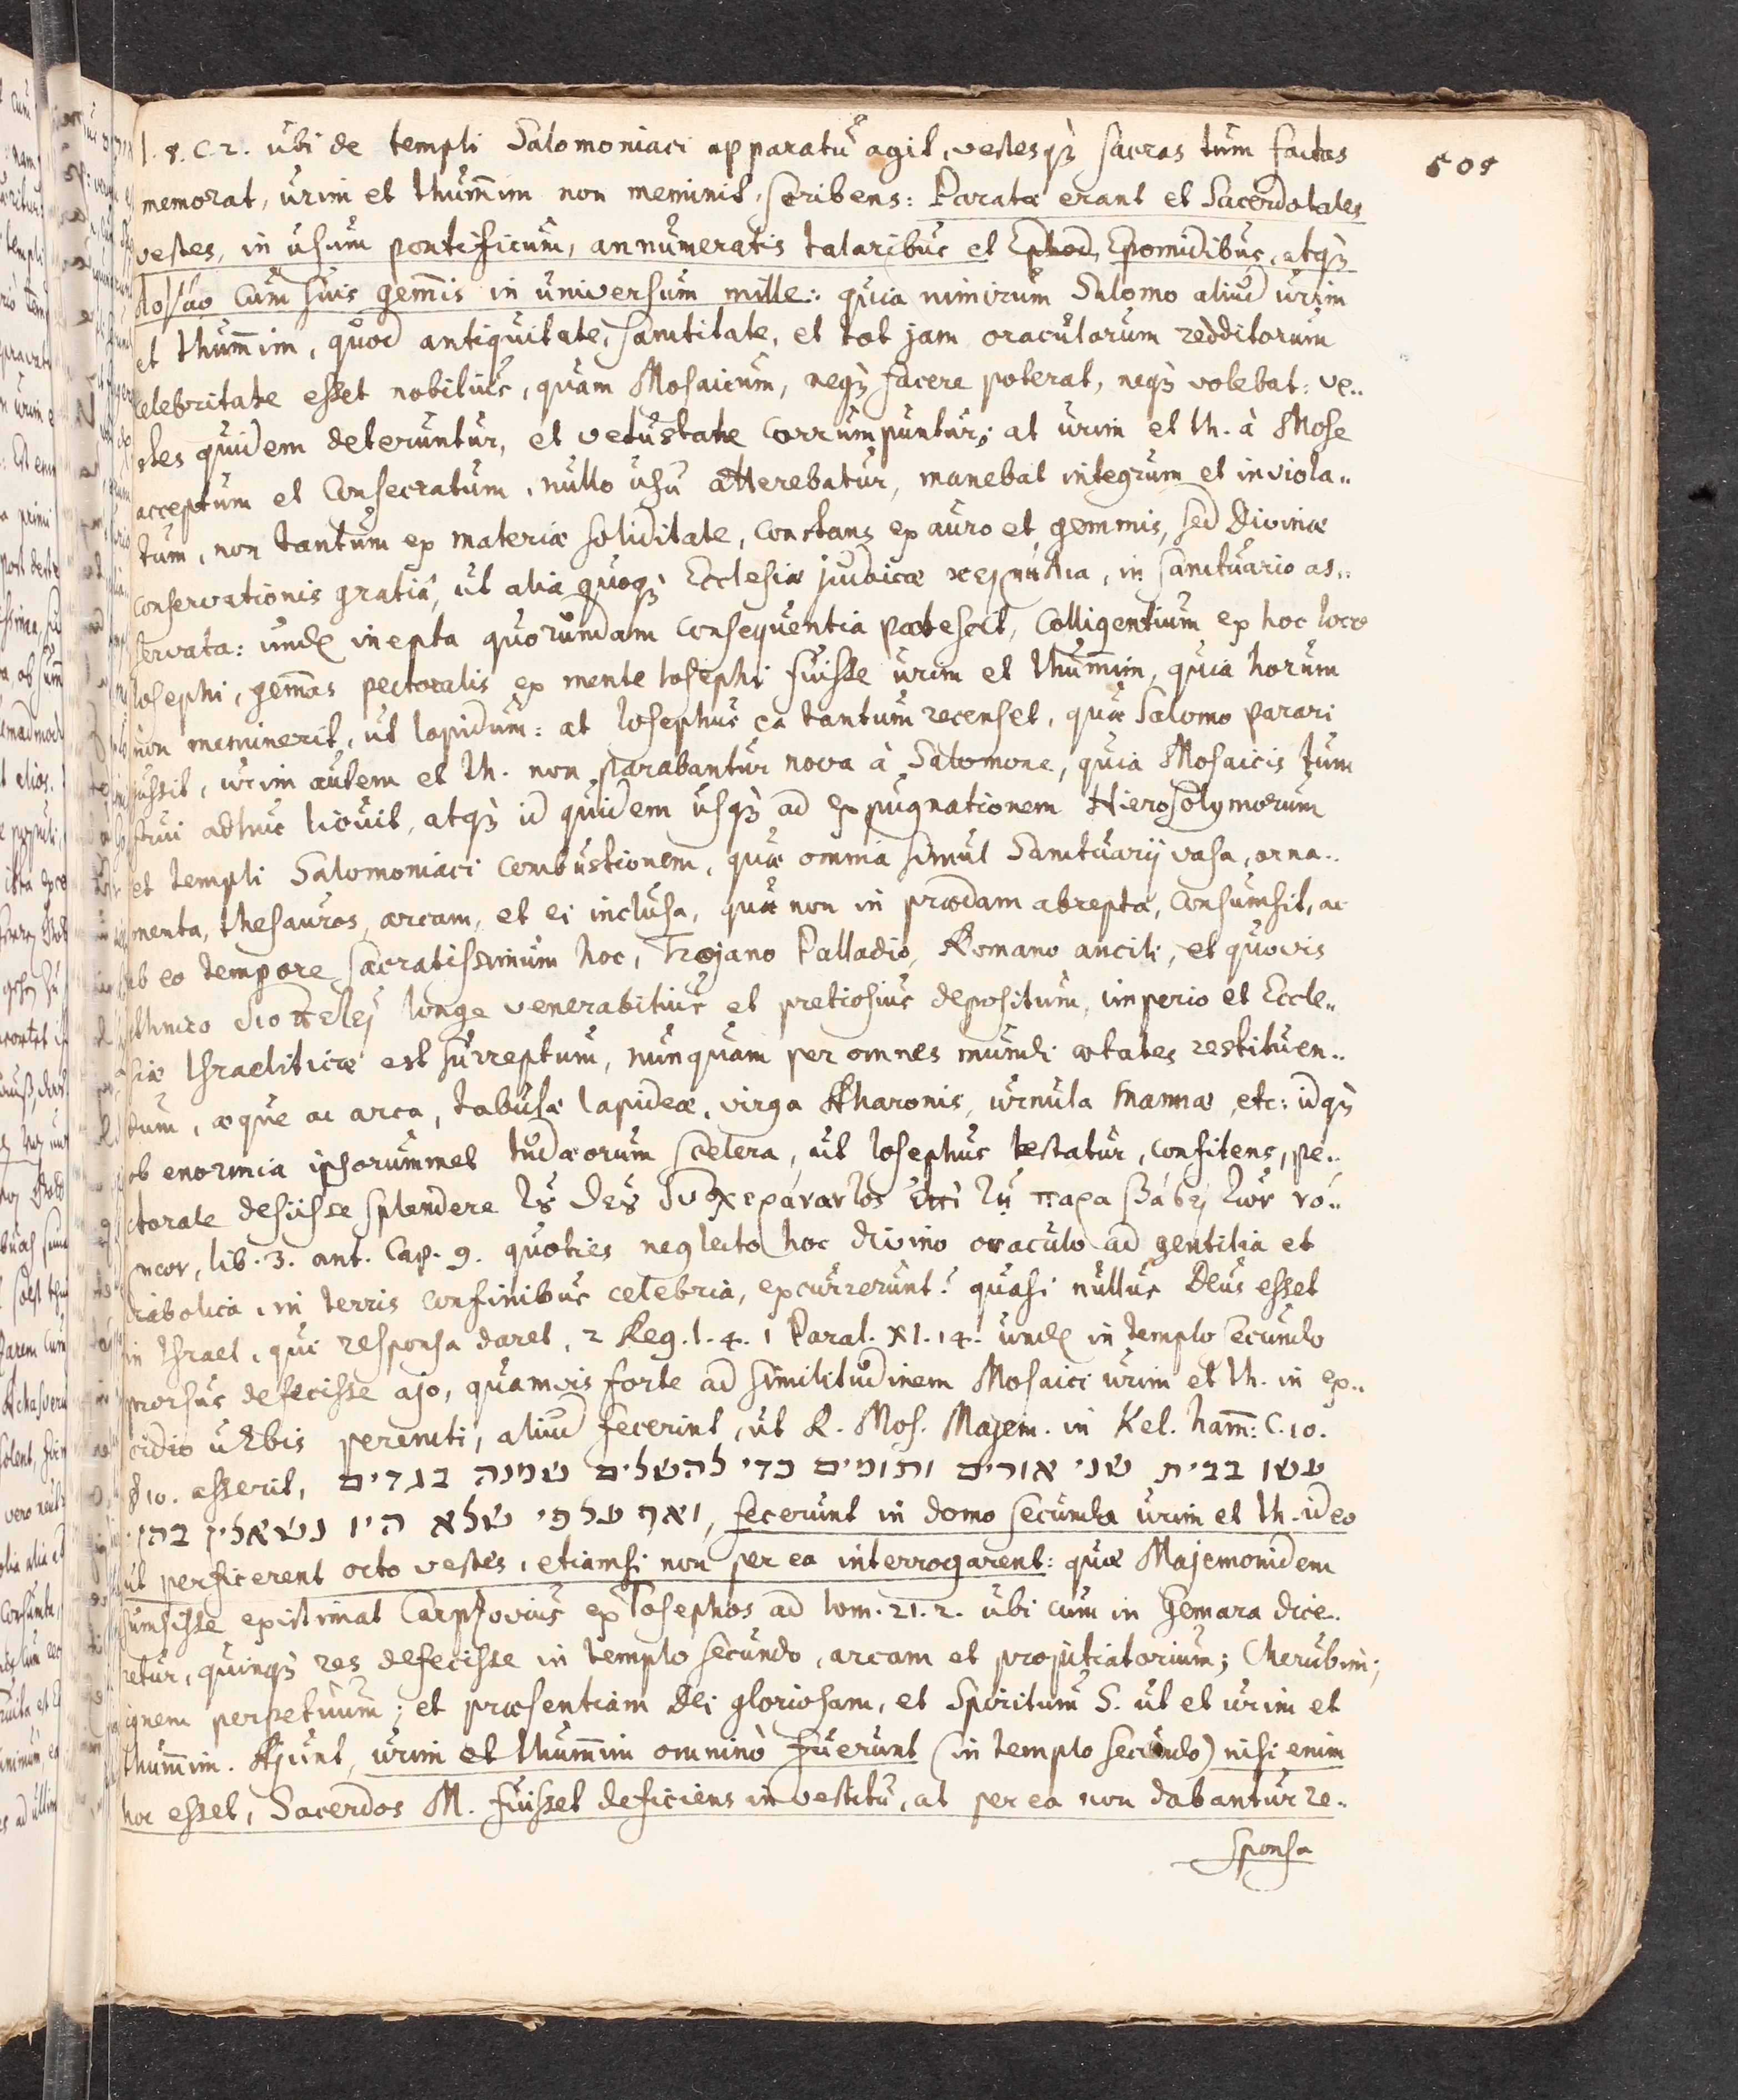 509
l. 8. c. 2. ubi de templi Salomoniaci apparatu agit, vestesqꝫ sacras tum factas
memorat, urim et thum̄im non meminit, scribens: Paratæ erant et Sacerdotales
vestes, in usum pontificum, annumeratis talaribus et Ephod, Epomidibus, atqꝫ
cum suis gem̄is in universum mille: quia nimirum Salomo aliud urim
et thum̄im, quod antiquitate, sanctitate, et tot jam oraculorum redditorum
celebritate esset nobilius, quam Mosaicum, neqꝫ facere poterat, neqꝫ volebat: ve..
stes quidem deteruntur, et vetustate corrumpuntur; at urim et th. à Mose
acceptum et consecratum, nullo usu atterebatur, manebat integrum et inviola..
tum, non tantum ex materiæ soliditate, constans ex auro et gemmis, sed divinæ
conservationis gratiâ, ut alia quoqꝫ Ecclesiæ judaicæ κειμήλια, in sanctuario as..
servata: unde inepta quorundam consequentia patescit, colligentium ex hoc loco
Iosephi, gem̄as pectoralis ex mente Iosephi fuisse urim et thum̄im, quia horum
non meminerit, ut lapidum: at Iosephus ea tantum recenset, quæ Salomo parari
jussit, urim autem et th. non parabantur nova à Salomone, quia Mosaicis tum
frui adhuc licuit, atqꝫ id quidem usqꝫ ad expugnationem Hierosolymorum
et templi Salomoniaci combustionem, quæ omnia simul Sanctuarij vasa, orna..
menta, thesauros, arcam, et ei inclusa, quæ non in prædam abrepta, consumsit, ac
ab eo tempore sacratissimum hoc, Trojano Palladio, Romano ancili, et quovis
ethnico διοπετεῖ longe venerabilius et pretiosius depositum, imperio et Eccle..
siæ Israeliticæ est surreptum, nunquam per omnes mundi ætates restituen..
dum, æque ac arca, tabulæ lapideæ, virga Aharonis, urnula mannæ, etc: idqꝫ
ob enormia ipsorummet Iudæorum scelera, ut Iosephus testatur, confitens, pe..
ctorale desiisse splendere τȣ̃ Θεȣ̃ δυσχεράναντος ἐπὶ τῇ παραβάσει τῶν νό..
μων, lib. 3. ant. Cap. 9. quoties neglecto hoc divino oraculo ad gentilia et
diabolica, in terris confinibus celebria, excurrerunt? quasi nullus Deus esset
in Israel, qui responsa daret, 2 Reg. 1. 4. 1 Paral. XI. 14. unde in templo secundo
prorsus defecisse ajo, quamvis forte ad similitudinem Mosaici urim et th. in ex..
cidio urbis peremti, aliud fecerint, ut R. Mos. Majem. in Kel. ham̄: c. 10.
§ 10. asserit, עשו בבית שני אורים ותומים כדי להשלים שמנה בגדים
ואף על פי שלא היו נשאלין בהן, fecerunt in domo secunda urim et th. ideo
ut perficerent octo vestes, etiamsi non per ea interrogarent: quæ Majemonidem
sumsisse existimat Carpzovius ex Tosephos ad Iom. 21. 2. ubi cum in Gemara dice..
retur, quinqꝫ res defecisse in templo secundo, arcam et propitiatorium; Cherubim;
ignem perpetuum; et præsentiam Dei gloriosam, et Spiritum S. ut et urim et
thum̄im. Ajunt, urim et thum̄im omninò fuerunt (in templo secundo) nisi enim
hoc esset, Sacerdos M. fuisset deficiens in vestitu, at per ea non dabantur re..
sponsa